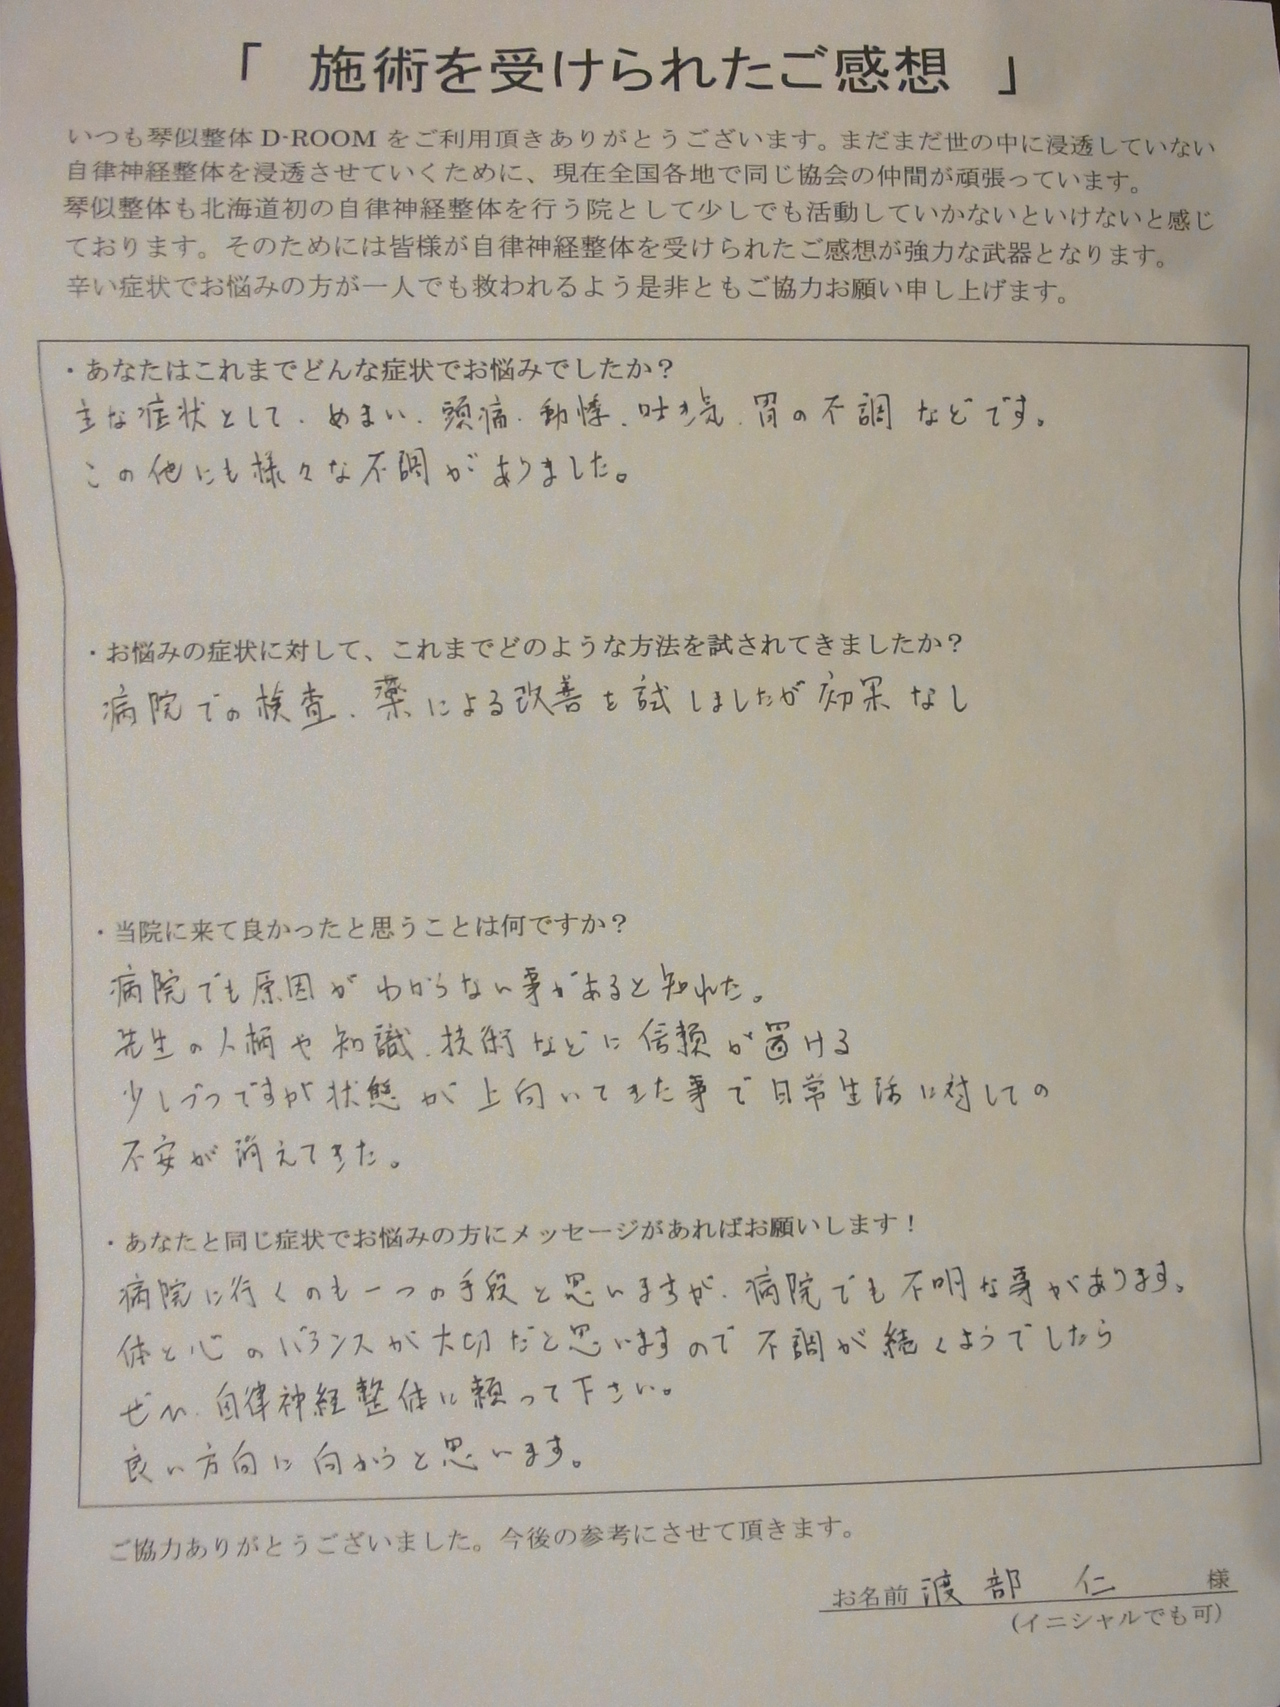 「　施術を受けられたご感想　」
いつも琴似整体 D-ROOM をご利用頂きありがとうございます。まだまだ世の中に浸透していない
自律神経整体を浸透させていくために、現在全国各地で同じ協会の仲間が頑張っています。
琴似整体も北海道初の自律神経整体を行う院として少しでも活動していかないといけないと感じ
ております。そのためには皆様が自律神経整体を受けられたご感想が強力な武器となります。
辛い症状でお悩みの方が一人でも救われるよう是非ともご協力お願い申し上げます。
・あなたはこれまでどんな症状でお悩みでしたか？
主な症状として、めまい、頭痛、動悸、吐き気、胃の不調などです。
この他にも様々な不調がありました。
・お悩みの症状に対して、これまでどのような方法を試されてきましたか？
病院での検査、薬による改善を試しましたが効果なし
・当院に来て良かったと思うことは何ですか？
病院でも原因がわからない事があると知れた。
先生の人柄や知識、技術などに信頼が置ける
少しづつですが状態が上向いてきた事で日常生活に対しての
不安が消えてきた。
・あなたと同じ症状でお悩みの方にメッセージがあればお願いします！
病院に行くのも一つの手段と思いますが、病院でも不明な事があります。
体と心のバランスが大切だと思いますので不調が続くようでしたら
ぜひ、自律神経整体に頼って下さい。
良い方向に向かうと思います。
ご協力ありがとうございました。今後の参考にさせて頂きます。
お名前 渡部　仁　様
（イニシャルでも可）